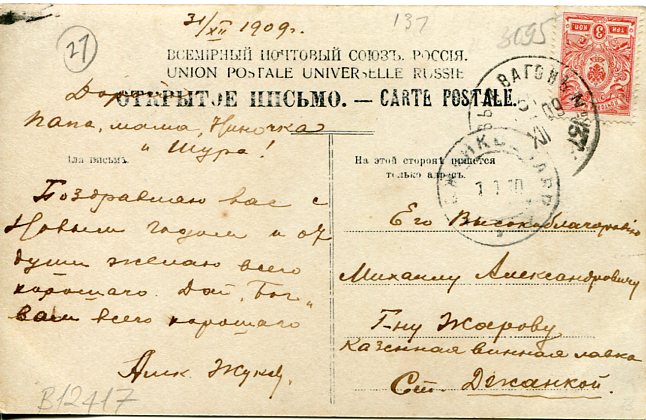 31/XII 1909 г.
137
27
ВСЕМІРНЫЙ ПОЧТОВЫЙ СОЮЗЪ. РОССІЯ.
UNION POSTALE UNIVERSELLE RUSSIE
ОТКРЫТОЕ ПИСЬМО. — CARTE POSTALE.
папа, мама, Ниночка
и Шура!
Для письма.
Поздравляю вас с
Новым годом и от
души желаю всего
хорошаго. Дай Бог
вам всего хорошаго
Алек. Жуков
В12417
3 КОП
ВАГОНЪ №
1 1 10
На этой сторонѣ пишется
только адресъ.
Его Высокоблагородію
Михаилу Александровичу
Г-ну Жарову
Казенная винная лавка
Ст. Джанкой.